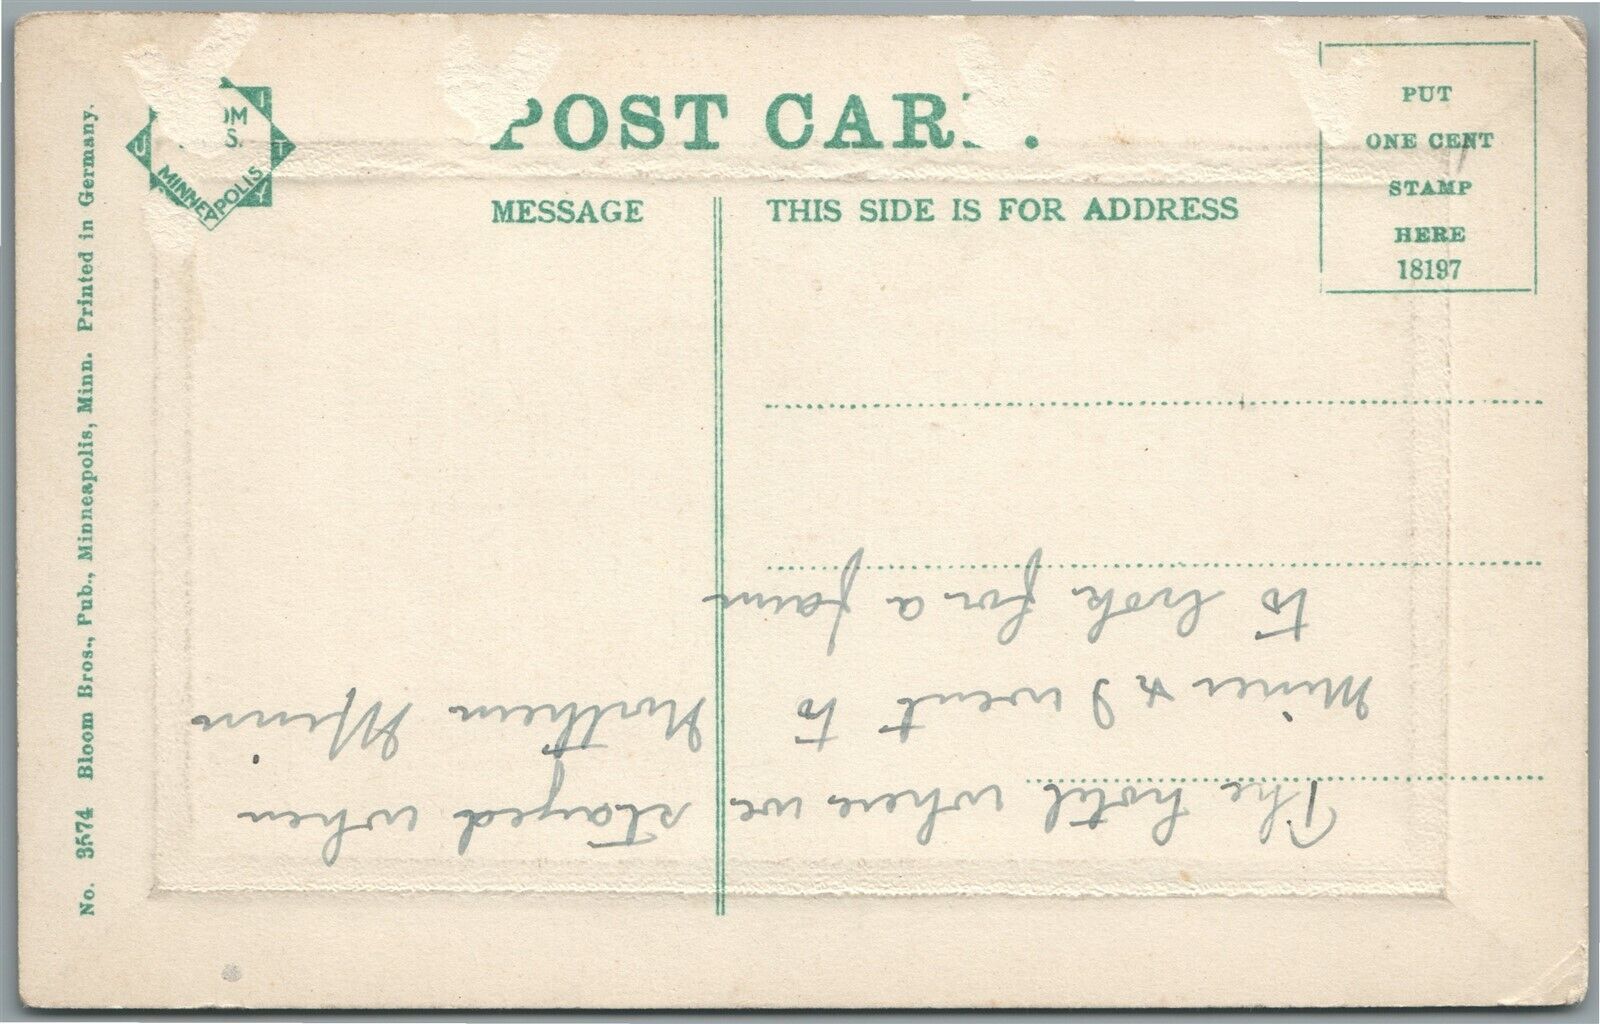 POST CAR
MESSAGE
THIS SIDE IS FOR ADDRESS
PUT
ONE CENT
STAMP
HERE
18197
OM
S.
MINNEAPOLIS
U I T Y
No. 3574 Bloom Bros., Pub., Minneapolis, Minn. Printed in Germany.
The hotel where we stayed when
Miner & I went to Northern Minn
to look for a farm